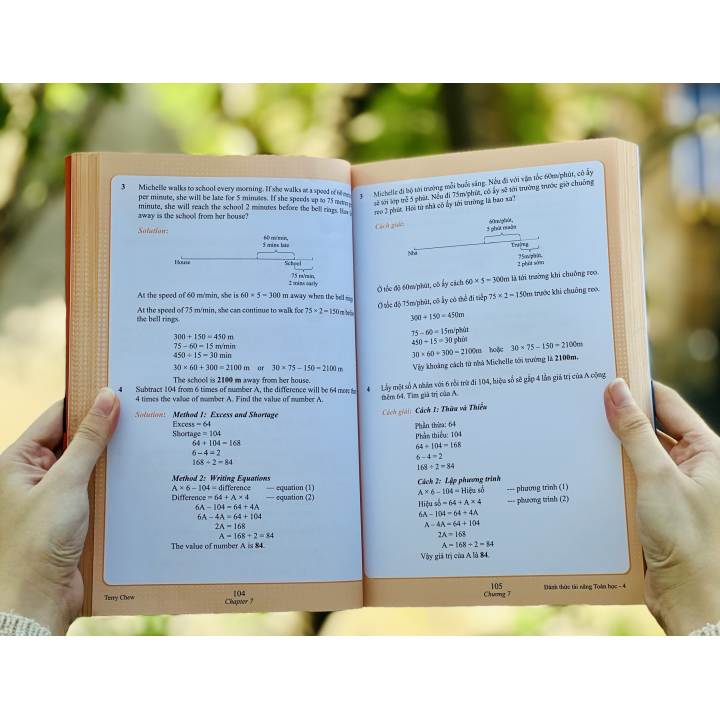 3 Michelle walks to school every morning. If she walks at a speed of 60
per minute, she will be late for 5 minutes. If she speeds up to 75 metres
minute, she will reach the school 2 minutes before the bell rings. How
away is the school from her house?
Solution:
60 m/min,
5 mins late
House School
75 m/min,
2 mins early
At the speed of 60 m/min, she is 60 × 5 = 300 m away when the bell
At the speed of 75 m/min, she can continue to walk for 75 × 2 = 150 m
the bell rings.
300 + 150 = 450 m
75 – 60 = 15 m/min
450 ÷ 15 = 30 min
30 × 60 + 300 = 2100 m or 30 × 75 – 150 = 2100 m
The school is 2100 m away from her house.
4 Subtract 104 from 6 times of number A, the difference will be 64 more
4 times the value of number A. Find the value of number A.
Solution: Method 1: Excess and Shortage
Excess = 64
Shortage = 104
64 + 104 = 168
6 – 4 = 2
168 ÷ 2 = 84
Method 2: Writing Equations
A × 6 – 104 = difference --- equation (1)
Difference = 64 + A × 4 --- equation (2)
6A – 104 = 64 + 4A
6A – 4A = 64 + 104
2A = 168
A = 168 ÷ 2 = 84
The value of number A is 84.
Terry Chew
104
Chapter 7
3 Michelle đi bộ tới trường mỗi buổi sáng. Nếu đi với vận tốc 60m/phút, cô ấy
sẽ tới lớp trễ 5 phút. Nếu đi 75m/phút, cô ấy sẽ tới trường trước giờ chuông
reo 2 phút. Hỏi từ nhà cô ấy tới trường là bao xa?
Cách giải:
60m/phút,
5 phút muộn
Nhà Trường
75m/phút,
2 phút sớm
Ở tốc độ 60m/phút, cô ấy cách 60 × 5 = 300m là tới trường khi chuông reo.
Ở tốc độ 75m/phút, cô ấy có thể đi tiếp 75 × 2 = 150m trước khi chuông reo.
300 + 150 = 450m
75 – 60 = 15m/phút
450 ÷ 15 = 30 phút
30 × 60 + 300 = 2100m hoặc 30 × 75 – 150 = 2100m
Vậy khoảng cách từ nhà Michelle tới trường là 2100m.
4 Lấy một số A nhân với 6 rồi trừ đi 104, hiệu số sẽ gấp 4 lần giá trị của A cộng
thêm 64. Tìm giá trị của A.
Cách giải: Cách 1: Thừa và Thiếu
Phần thừa: 64
Phần thiếu: 104
64 + 104 = 168
6 – 4 = 2
168 ÷ 2 = 84
Cách 2: Lập phương trình
A × 6 – 104 = Hiệu số --- phương trình (1)
Hiệu số = 64 + A × 4 --- phương trình (2)
6A – 104 = 64 + 4A
A – 4A = 64 + 104
2A = 168
A = 168 ÷ 2 = 84
Vậy giá trị của A là 84.
105
Chương 7
Đánh thức tài năng Toán học - 4